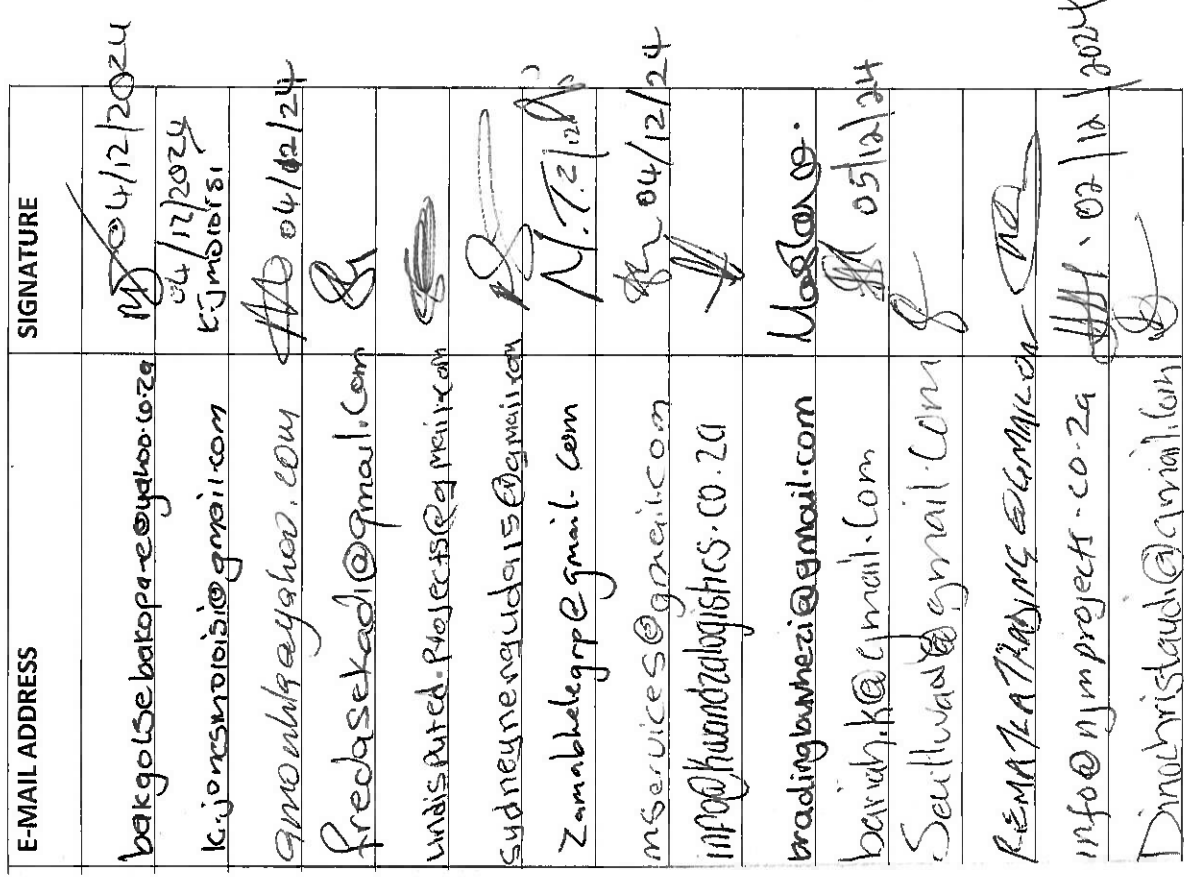 E-MAIL ADDRESS SIGNATURE
bakgolsebakopa-e@yahoo.co.za 04/12/2024
kijonesmoloisi@gmail.com 04/12/2024 K.J moloisi
04/12/24
fredasekadi@gmail.com
undisputed.projects@gmail.com
sydneynengudais@gmail.com
Zamabhelegrp@gmail.com M.T.Z
mservices@gmail.com 04/12/24
info@khwandzalogistics.co.za
bradingbuvhezi@gmail.com
bariah.k@gmail.com 05/12/24
@gmail.com
REMATLATRADING@GMAIL.COM
info@njmprojects.co.za 02/12/2024
Dinochristaudi@gmail.com